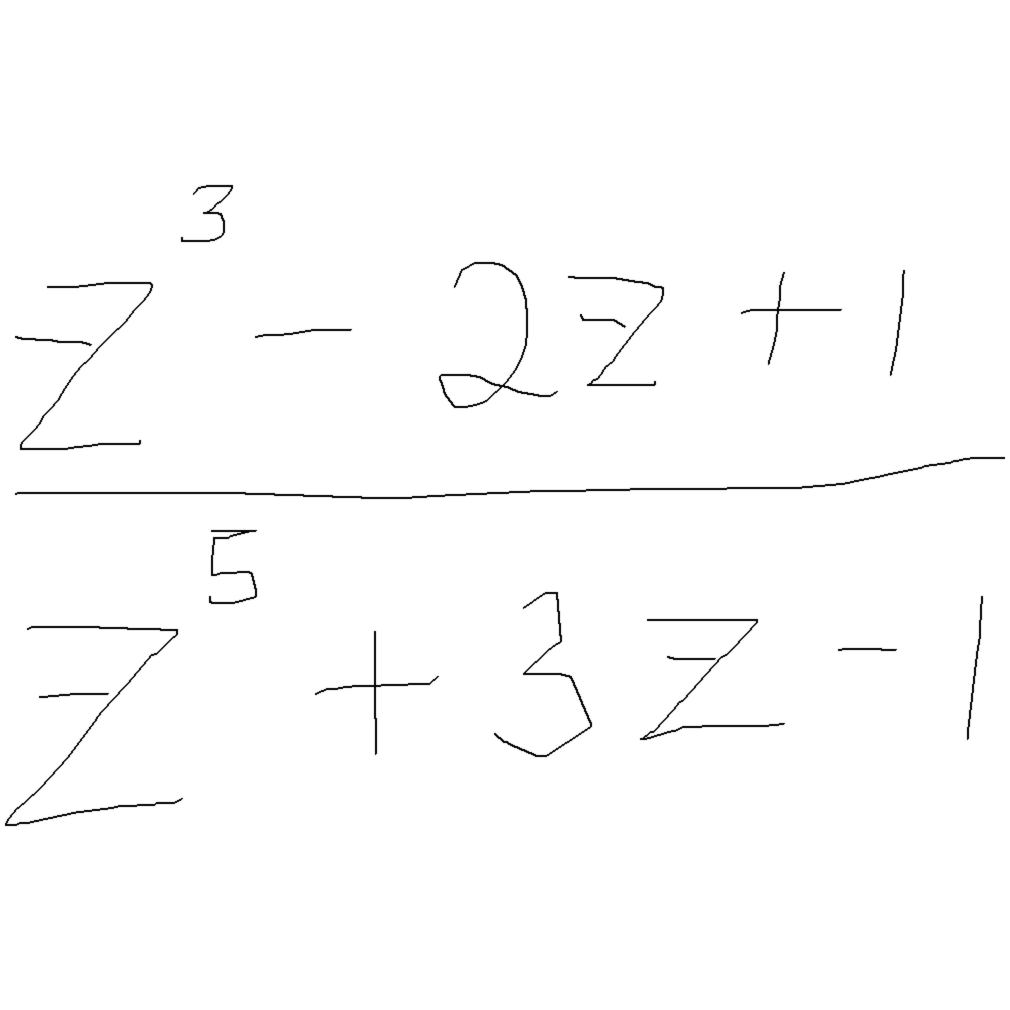 z³ - 2z + 1
z⁵ + 3z - 1